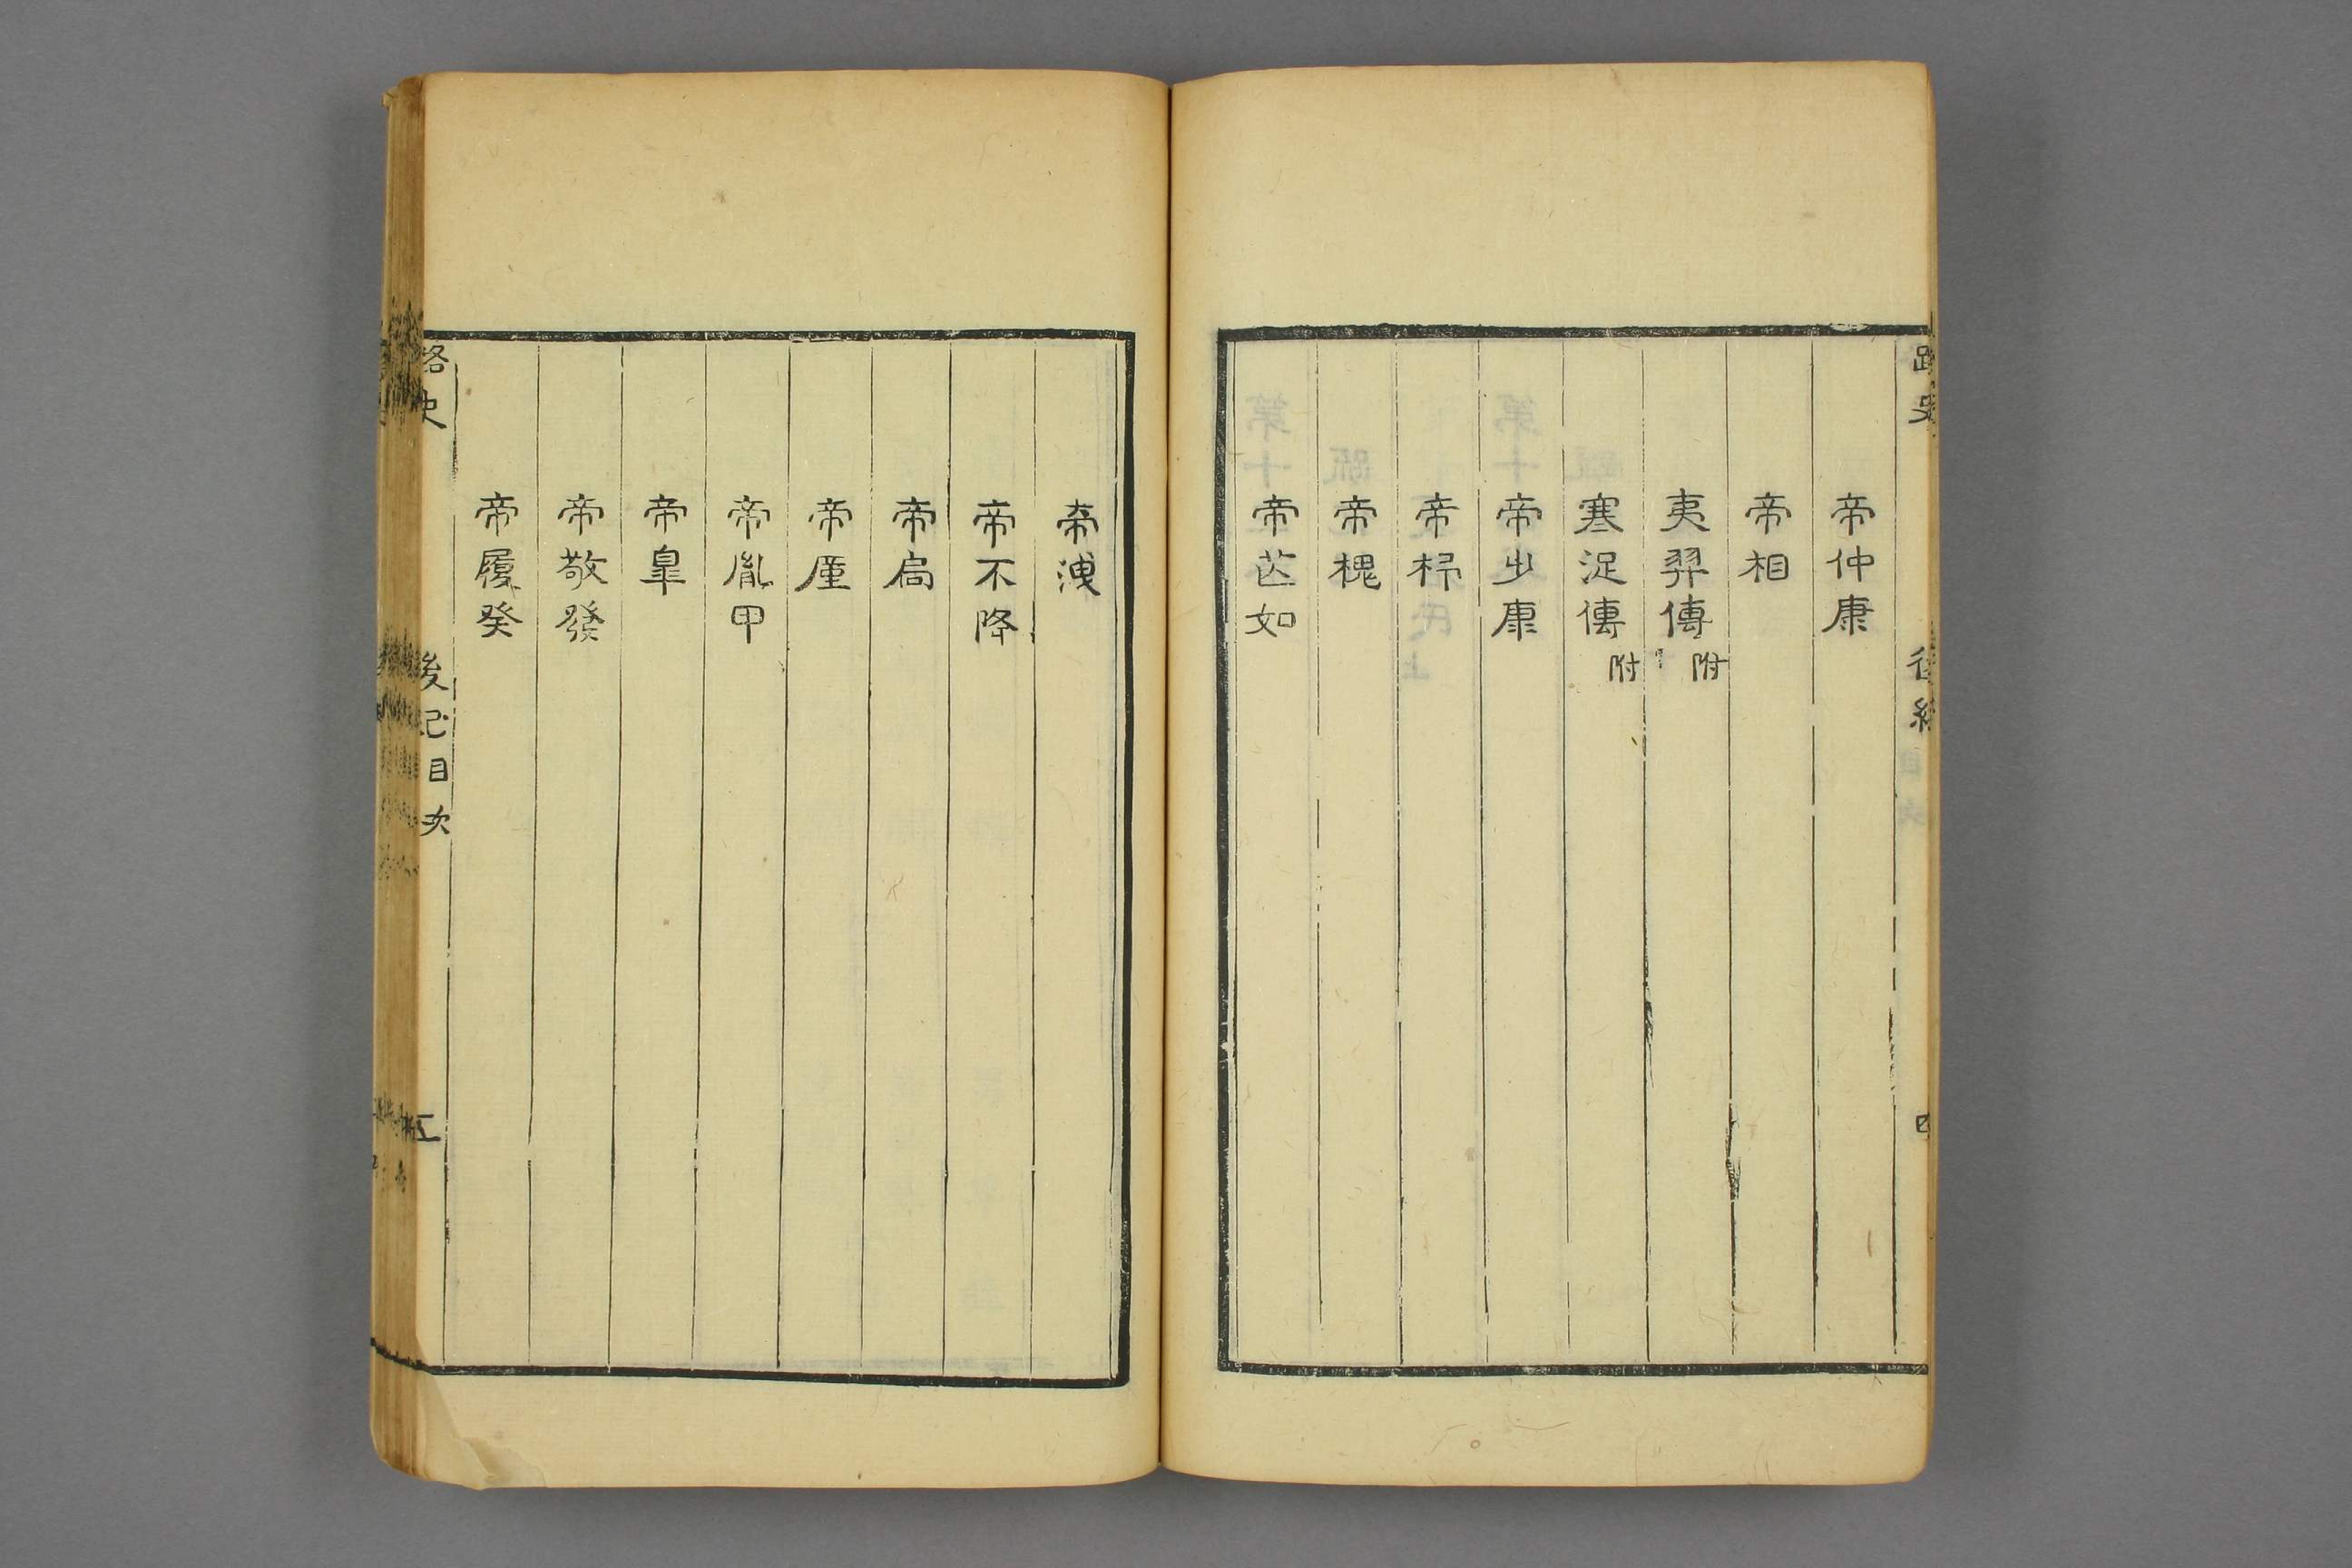 帝仲康
帝相
夷羿傳附
寒浞傳附
帝少康
帝杼
帝槐
帝芒如
帝洩
帝不降
帝扃
帝厪
帝胤甲
帝皐
帝敬發
帝履癸
路史
後紀目次
五